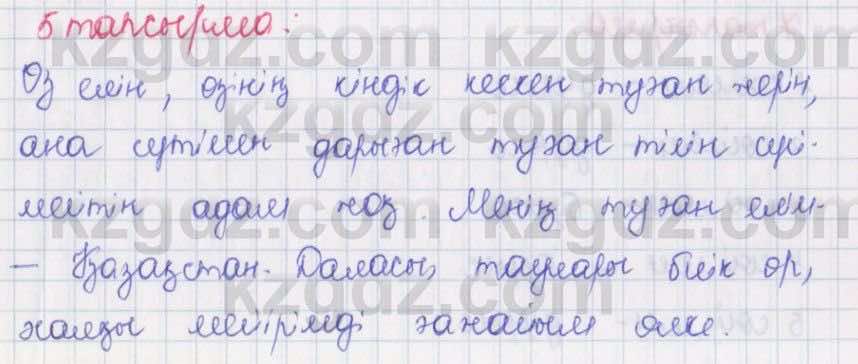 5 тапсырма:
Өз елін, өзінің кіндік кескен туған жерін,
ана сүтімен дарыған туған тілін сүй-
мейтін адам жоқ. Менің туған елім-
– Қазақстан. Даласы, таулары биік ор,
халқы мейірімді ғажайып өлке.
kzgdz.com